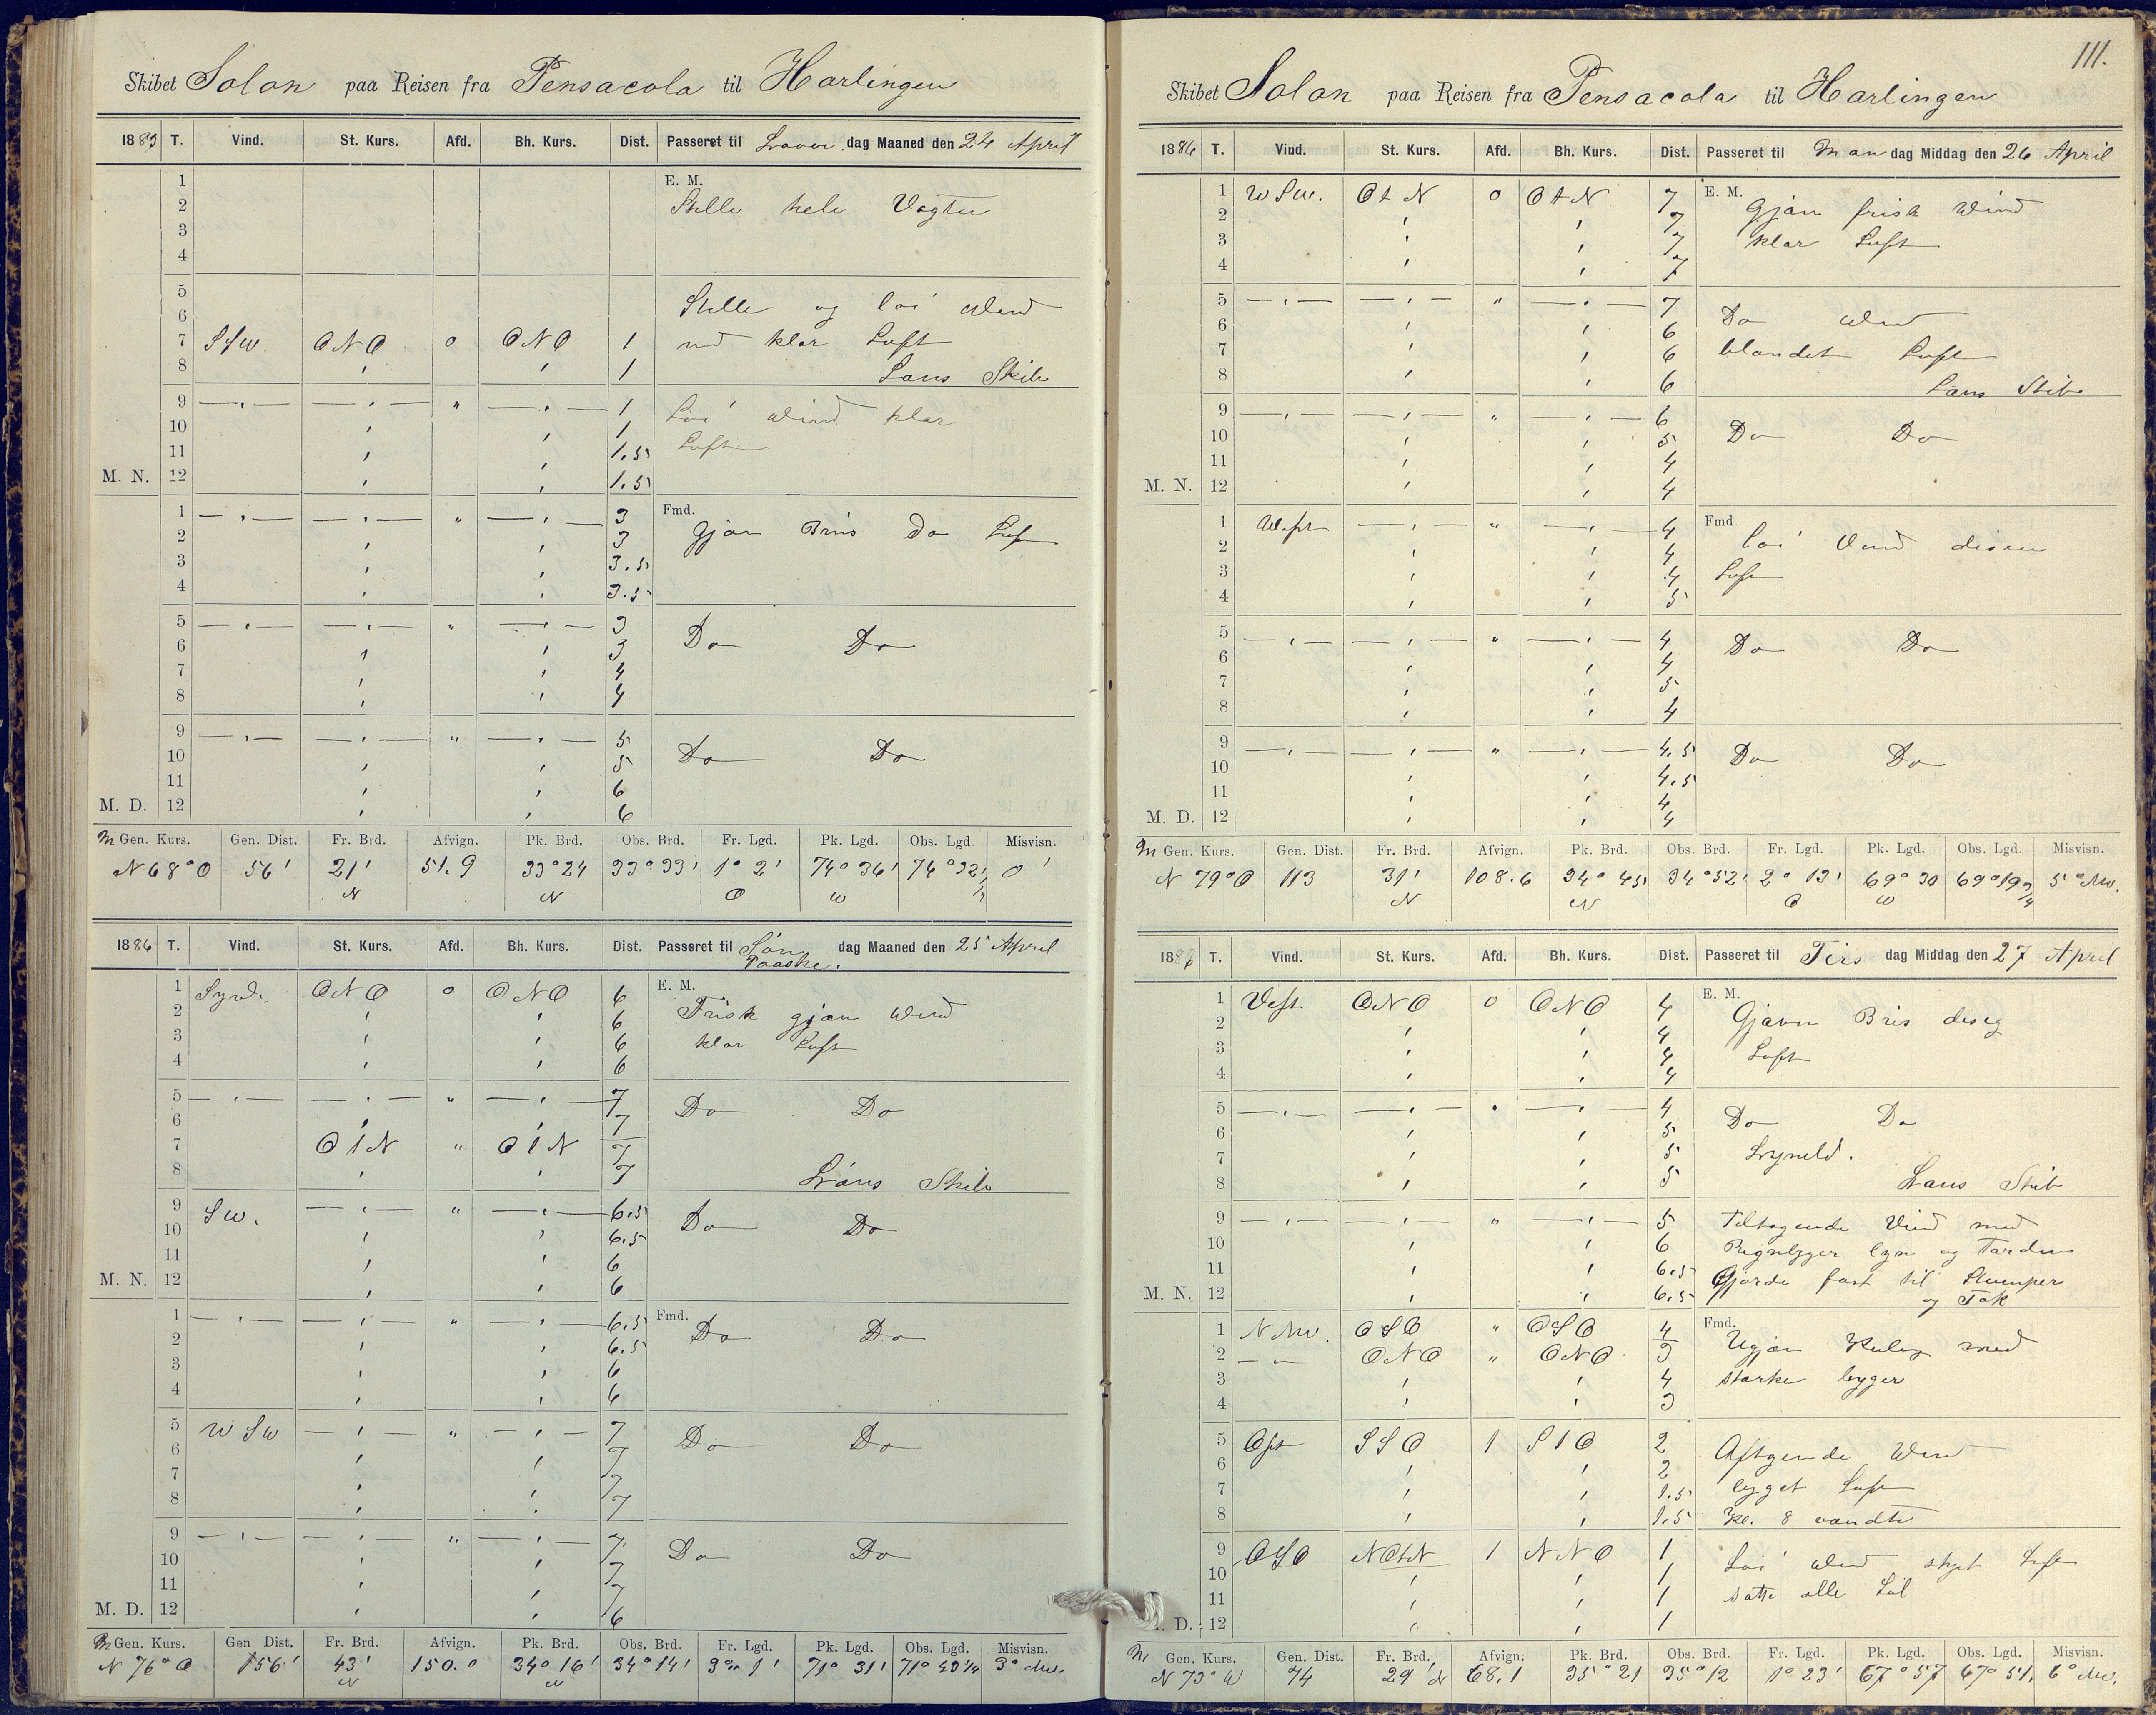 Skibet Solon paa Reisen fra Pensacola til Harlingen
18 T. Vind. St. Kurs. Afd. Bh. Kurs. Dist. Passeret til dag Maaned den 24 April
1 E. M.
2 Stille hele Vagten
3
4
5
6 Stille og løi Wind
7 SSW. ONO 0 ONO 1 klar Luft
8 ' ' 1 Lans Skib
9 — " — — " — " — " — 1 Løi Wind klar
10 ' ' 1 Luft
11 ' ' 1.5
M. N. 12 ' ' 1.5
1 — " — — " — " — " — 3 Fmd.
2 ' ' 3 Gjæn Bris Do Luft
3 ' ' 3.5
4 ' ' 3.5
5 — " — — " — " — " — 3
6 ' ' 3 Do Do
7 ' ' 4
8 ' ' 4
9 — " — — " — " — " — 5
10 ' ' 5 Do Do
11 ' ' 6
M. D. 12 ' ' 6
Gen. Kurs. Gen. Dist. Fr. Brd. Afvign. Pk. Brd. Obs. Brd. Fr. Lgd. Pk. Lgd. Obs. Lgd. Misvisn.
N 68° O 56' 21' N 51.9 33° 24 N 33° 33' 1° 2' O 74° 36' W 74° 32' 1/2 0'
1886 T. Vind. St. Kurs. Afd. Bh. Kurs. Dist. Passeret til Søn dag Maaned den 25 April
Paaske.
1 Synd. ONO 0 ONO 6 E. M.
2 ' ' 6 Frisk gjæn Wind
3 ' ' 6 klar Luft
4 ' ' 6
5 — " — — " — " — " — 7 Do Do
6 ' ' 7
7 O t N " O t N 7
8 ' ' 7 Lans Skib
9 SW. — " — " — " — 6.5 Do Do
10 ' ' 6.5
11 ' ' 6
M. N. 12 ' ' 6
1 — " — — " — " — " — 6.5 Fmd. Do Do
2 ' ' 6.5
3 ' ' 6
4 ' ' 6
5 W SW — " — " — " — 7 Do Do
6 ' ' 7
7 ' ' 7
8 ' ' 7
9 — " — — " — " — " — 7 Do Do
10 ' ' 7
11 ' ' 7
M. D. 12 ' ' 6
Gen. Kurs. Gen Dist. Fr. Brd. Afvign. Pk. Brd. Obs. Brd. Fr. Lgd. Pk. Lgd. Obs. Lgd. Misvisn.
N 76° O 156' 43' N 150.0 34° 16' N 34° 14' 3° 1' 71° 31' 71° 1/4 3° NW.
111.
Skibet Solon paa Reisen fra Pensacola til Harlingen
1886 T. Vind. St. Kurs. Afd. Bh. Kurs. Dist. Passeret til Man dag Middag den 26 April
1 W SW. O t N 0 O t N 7 E. M.
2 ' ' 7 Gjæn frisk Wind
3 ' ' 7 klar Luft
4 ' ' 7
5 — " — — " — " — " — 7 Do Wind
6 ' ' 6 blandet Luft
7 ' ' 6
8 ' ' 6 Lans Skib
9 — " — — " — " — " — 6
10 ' ' 5 Do Do
11 ' ' 4
M. N. 12 ' ' 4
1 West — " — " — " — 4 Fmd
2 ' ' 4 løi Vind
3 ' ' 4 Luft
4 ' ' 5
5 — " — — " — " — " — 4
6 ' ' 4 Do Do
7 ' ' 5
8 ' ' 4
9 — " — — " — " — " — 4.5 Do Do
10 ' ' 4.5
11 ' ' 4
M. D. 12 ' ' 4
Gen. Kurs. Gen. Dist. Fr. Brd. Afvign. Pk. Brd. Obs. Brd. Fr. Lgd. Pk. Lgd. Obs. Lgd. Misvisn.
N 79° O 113 31' N 108.6 34° 45' N 34° 52' 2° 13' O 69° 30 W 69° 19 3/4 5° NW.
1886 T. Vind. St. Kurs. Afd. Bh. Kurs. Dist. Passeret til Tirs dag Middag den 27 April
1 Vest ONO 0 ONO 4 E. M.
2 ' ' 4 Gjævn Bris diseg
3 ' ' 4 Luft
4 ' ' 4
5 — " — — " — " — " — 4 Do Do
6 ' ' 5
7 ' ' 5 Lyneld.
8 ' ' 5 Lans Skib
9 — " — — " — " — " — 5 Tiltagende Vind med
10 ' ' 6 Regnbyger lyn og Torden
11 ' ' 6.5 Gjorde fast til Stumper
M. N. 12 ' ' 6.5 og Tok
1 N NW. OSO " OSO 4 Fmd.
2 — " — ONO " ONO 3 Ugjæn Kuling med
3 ' ' 4 stærke byger
4 ' ' 3
5 Ost SSO 1 S t O 2 Aftgende Wind
6 ' ' 2
7 ' ' 1.5 bygget Luft
8 ' ' 1.5 Kl. 8 vandte
9 OSO NOtN 1 NNO 1 Løi Wind skyet Luft
10 ' ' 1
11 ' ' 1 satte alle Seil
D. 12 ' ' 1
Gen. Kurs. Gen. Dist. Fr. Brd. Afvign. Pk. Brd. Obs. Brd. Fr. Lgd. Pk. Lgd. Obs. Lgd. Misvisn.
N 73° W 74 29' N 68.1 35° 21 35° 12 1° 23' 67° 57 67° 51, 6° NW.